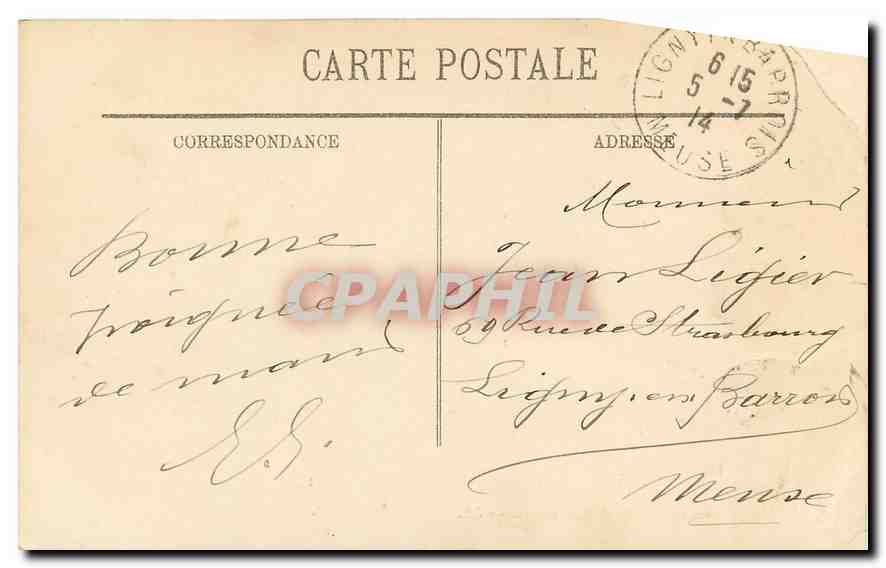 CARTE POSTALE
LIGNY EN BARROIS
6 15
5 -7
14
MEUSE
CORRESPONDANCE
ADRESSE
Bonne
poignée
de main
E. G.
Monsieur
Jean Ligier
69 Rue de Strasbourg
Ligny. en Barrois
Meuse
CPAPHIL